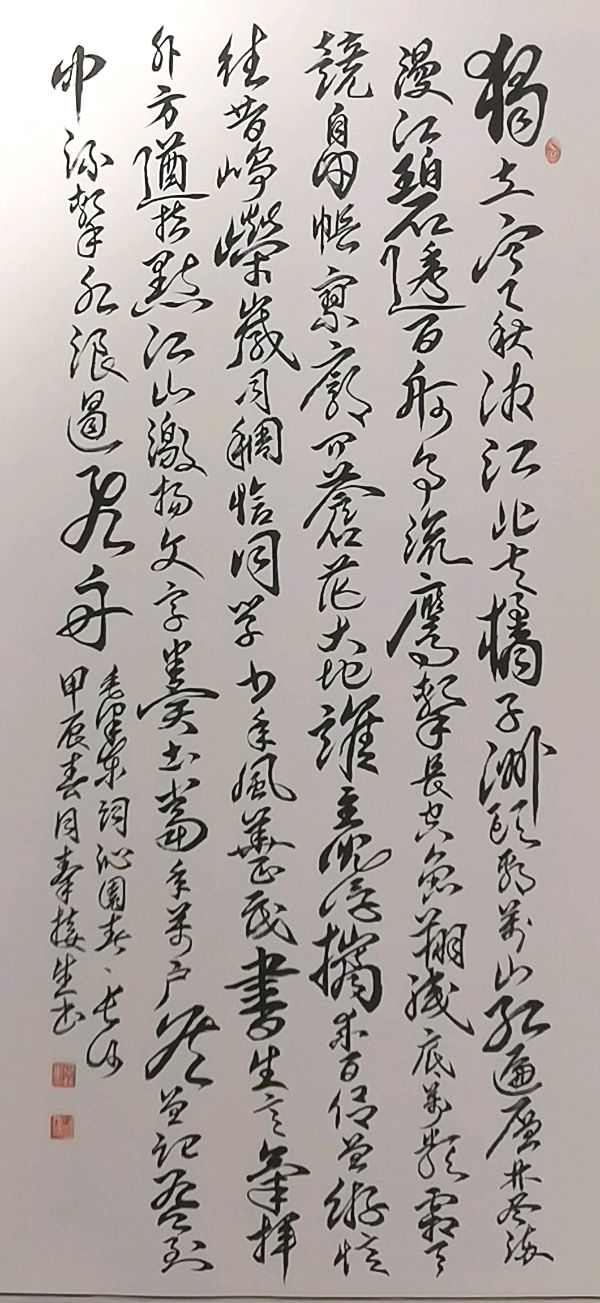 獨立寒秋湘江北去橘子洲頭看萬山紅遍層林盡染
漫江碧透百舸爭流鷹擊長空魚翔淺底萬類霜天
競自由悵寥廓問蒼茫大地誰主沉浮攜來百侶曾遊憶
往昔崢嶸歲月稠恰同学少年風華正茂書生意氣揮
斥方遒指點江山激揚文字糞土當年萬戶侯曾記否到
中流擊水浪遏飛舟
毛澤東詞沁園春、長沙
甲辰春月秦接生书